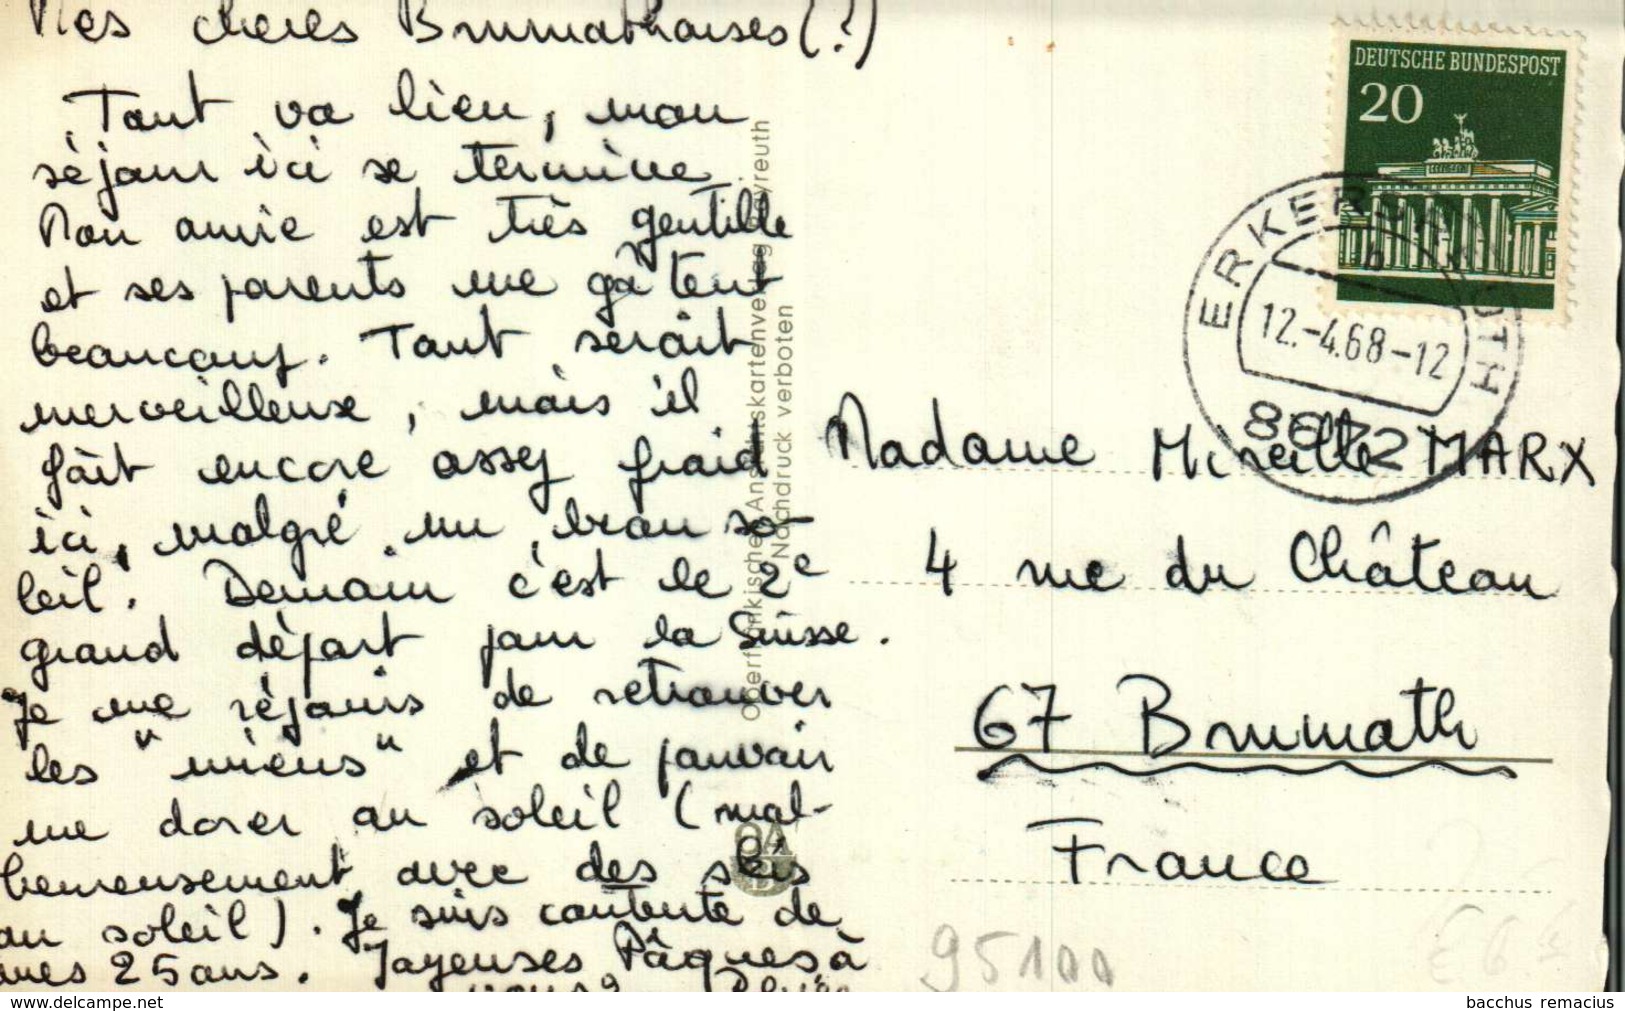 Mes chères Brumathoises (?)
Tout va bien, mon
séjour ici se termine
Mon amie est très gentille
et ses parents me gâtent
beaucoup. Tout serait
merveilleux, mais il
fait encore assez froid
ici, malgré un beau so-
leil. Demain c'est le 2e
grand départ pour la Suisse.
Je me réjouis de retrouver
les "miens" et de pouvoir
me dorer au soleil (mal-
heureusement avec des skis
au soleil). Je suis contente de
mes 25 ans. Joyeuses Pâques à
vous
Oberfränkischer Ansichtskartenverlag Bayreuth
Nachdruck verboten
OA
B
DEUTSCHE BUNDESPOST
20
ERKERSREUTH
b
12.-4.68-12
8672
Madame Mireille MARX
4 rue du Château
67 Brumath
France
95100
www.delcampe.net
bacchus remacius